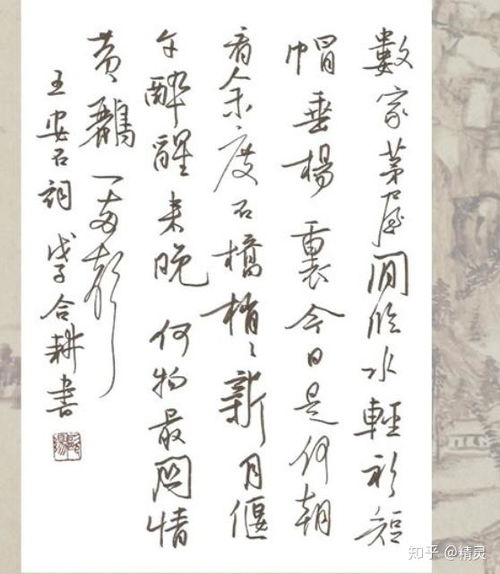 數家茅屋閒临水輕衫短
帽垂楊裏今日是何朝
看余度石橋梢々新月偃
午醉醒来晚何物最関情
黄鸝一兩声
王安石詞 戊子合耕書
知乎 @精灵